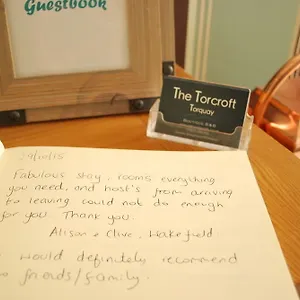 Guestbook
The Torcroft
Torquay
29/10/15
Fabulous stay, rooms everything
you need, and host's from arriving
to leaving could not do enough
for you. Thank you.
Alison & Clive, Wakefield
would definitely recommend
to friends/family.